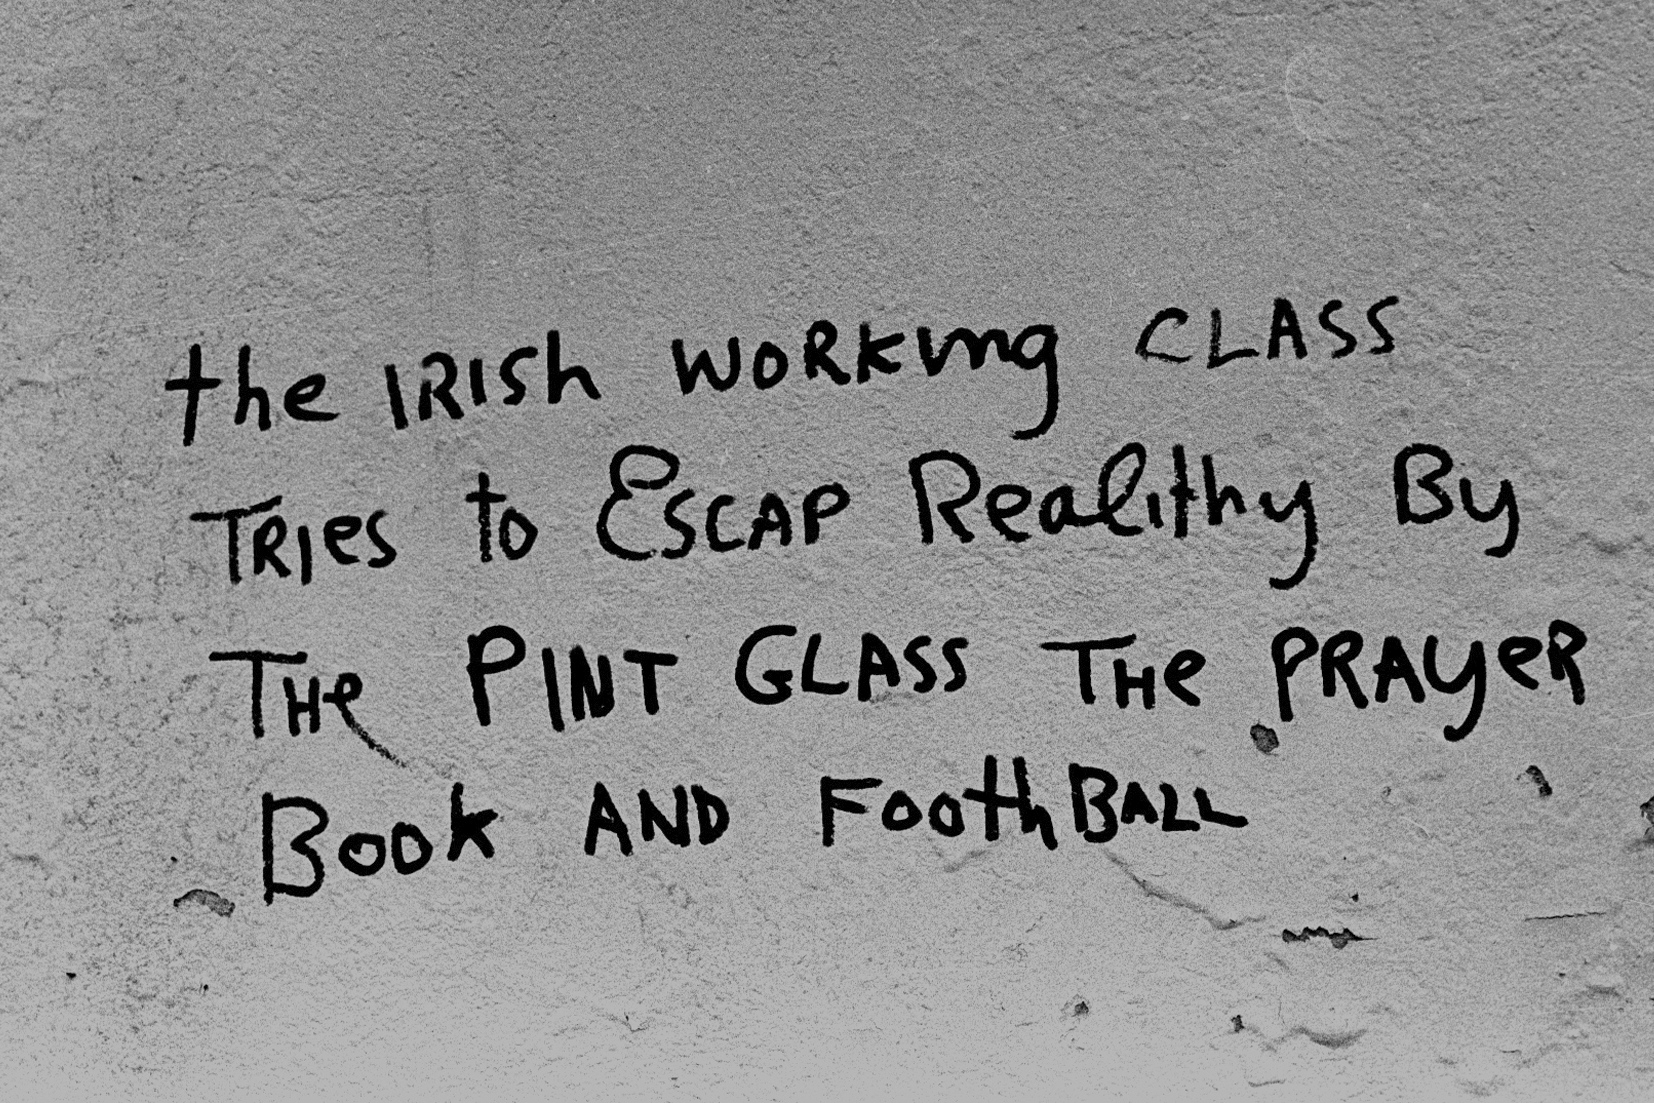 the IRISh WORKing CLASS
TRIes to ESCAP Realithy By
THe PINT GLASS THe PRAyeR
Book AND FoothBALL